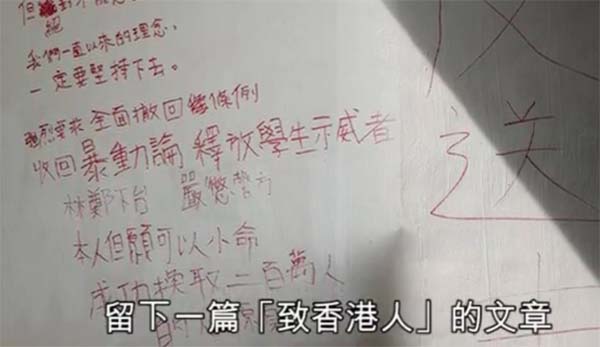 我們一直以來的理念，
一定要堅持下去。
強烈要求全面撤回條例
收回暴動論 釋放學生示威者
林鄭下台 嚴懲警方
本人但願可以小命
成功換取二百萬人
反
送
留下一篇「致香港人」的文章